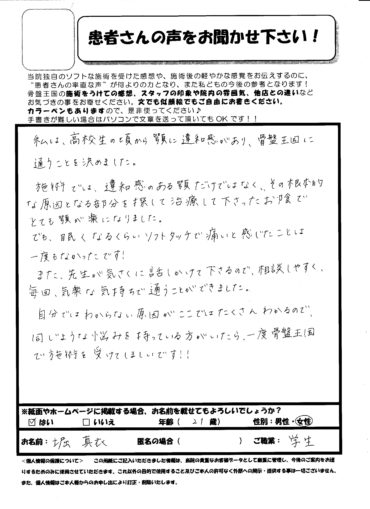 患者さんの声をお聞かせ下さい！
当院独自のソフトな施術を受けた感想や、施術後の軽やかな感覚をお伝えするのに、
“患者さんの率直な声” が何よりの力となり、また私どもの今後の参考となります！
骨盤王国の施術をうけての感想、スタッフの印象や院内の雰囲気、他店との違いなど
お気づきの事をお寄せください。文でも似顔絵でもご自由にお書きください。
カラーペンもありますので、是非使ってください♪
手書きが難しい場合はパソコンで文章を送って頂いてもOKです！！
私は、高校生の頃から顎に違和感があり、骨盤王国に
通うことを決めました。
施術では、違和感のある顎だけではなく、その根本的
な原因となる部分を探して治療して下さったお陰で
とても顎が楽になりました。
でも、眠くなるくらいソフトタッチで痛いと感じたことは
一度もなかったです！
また、先生が気さくに話しかけて下さるので、相談しやすく、
毎回、気楽な気持ちで通うことができました。
自分ではわからない原因がここではたくさんわかるので、
同じような悩みを持っている方がいたら、一度骨盤王国
で施術を受けてほしいです！！
※紙面やホームページに掲載する場合、お名前を載せてもよろしいでしょうか？
はい いいえ 年齢（ 21 歳） 性別：男性・女性
お名前：堀 真衣 匿名の場合（ ） ご職業： 学生
＜個人情報の保護について＞ この用紙にご記入いただきました情報は、当院の貴重なお客様データとして厳重に管理し、今後のご案内をお送
りするためのみに使用させていただきます。これ以外の目的で使用すること及びご本人の許可なく外部への開示・提供する事は一切ございません。
また、個人情報はご本人様からのお申し出により訂正・削除いたします。